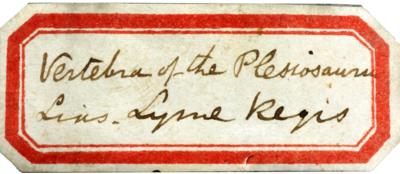 Vertebra of the Plesiosauru
Lias. Lyme Regis